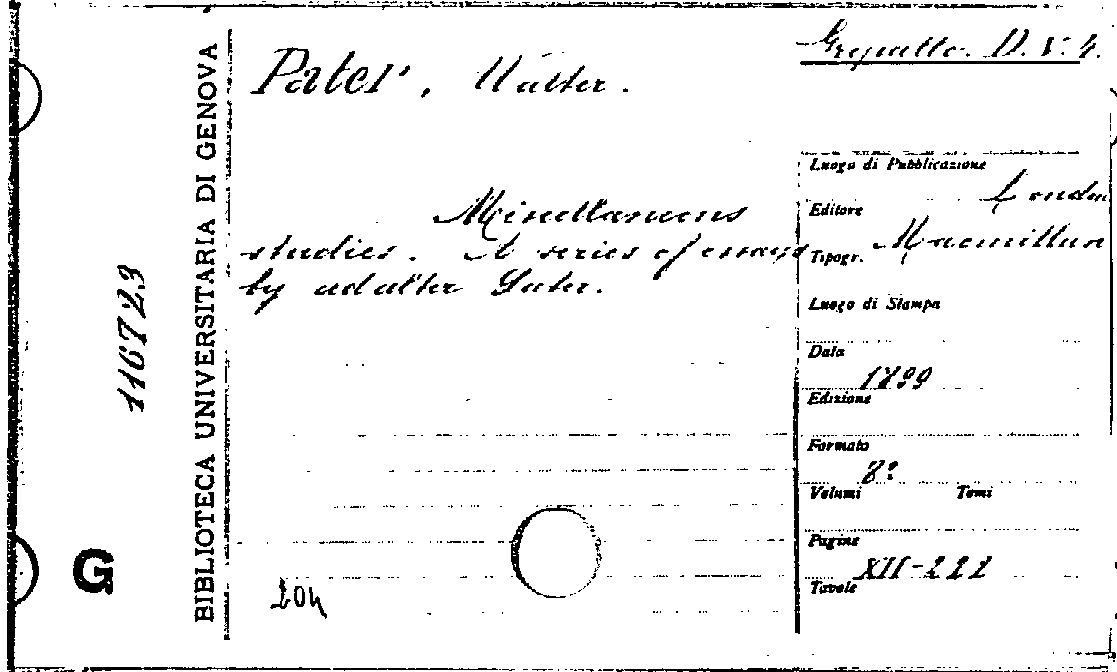 Gropallo. D. V. 4.
Pater, Walter.
Luogo di Pubblicazione
London
Editore
Miscellaneous
Macmillan
studies. A series of essays
Tipogr.
by Walter Pater.
Luogo di Stampa
Data
1899
Edizione
Formato
8°
Volumi Tomi
Pagine
XII-222
Tavole
204
116723
BIBLIOTECA UNIVERSITARIA DI GENOVA
G